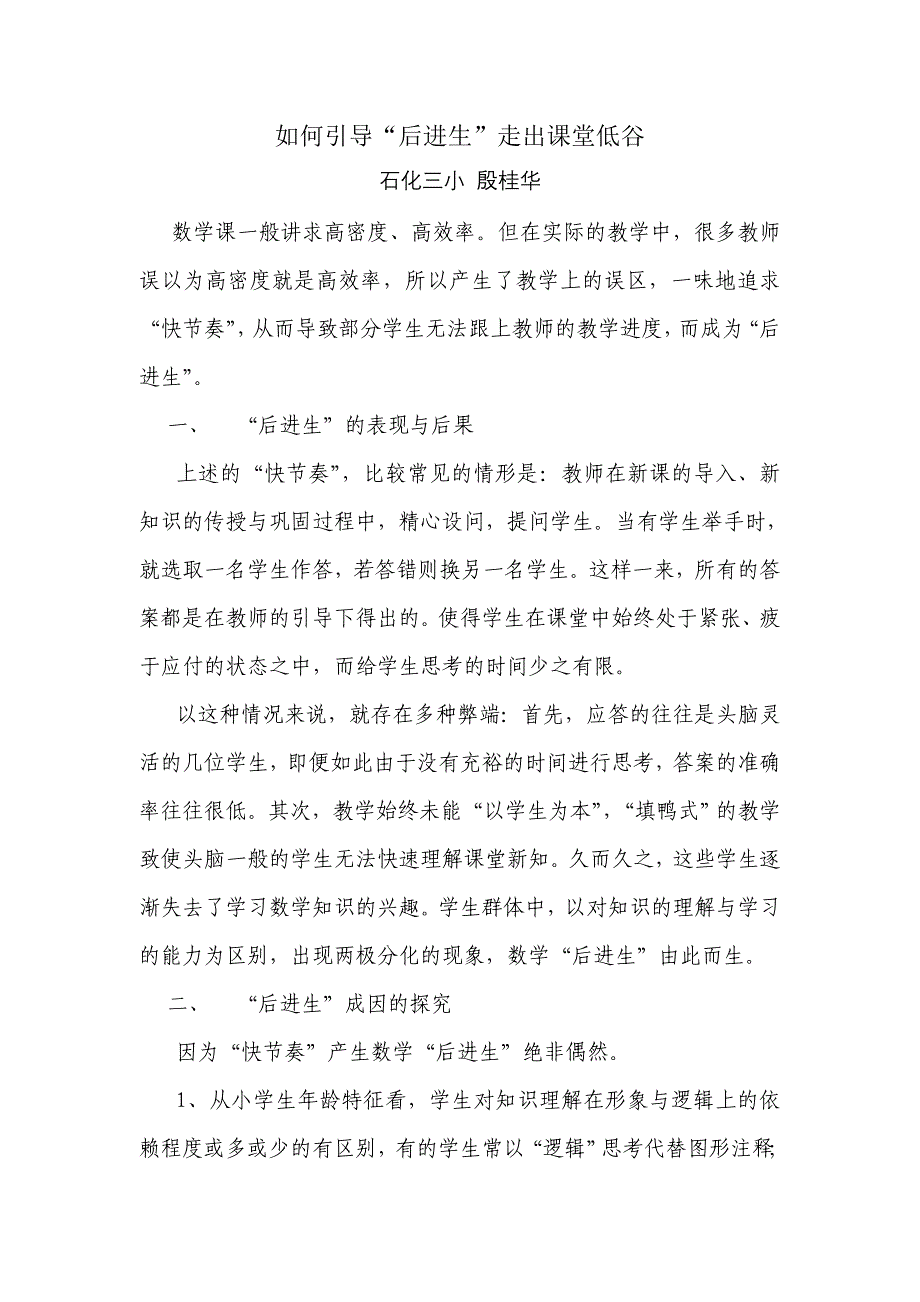 如何引导“后进生”走出课堂低谷
石化三小 殷桂华
数学课一般讲求高密度、高效率。但在实际的教学中，很多教师
误以为高密度就是高效率，所以产生了教学上的误区，一味地追求
“快节奏”，从而导致部分学生无法跟上教师的教学进度，而成为“后
进生”。
一、 “后进生”的表现与后果
上述的“快节奏”，比较常见的情形是：教师在新课的导入、新
知识的传授与巩固过程中，精心设问，提问学生。当有学生举手时，
就选取一名学生作答，若答错则换另一名学生。这样一来，所有的答
案都是在教师的引导下得出的。使得学生在课堂中始终处于紧张、疲
于应付的状态之中，而给学生思考的时间少之有限。
以这种情况来说，就存在多种弊端：首先，应答的往往是头脑灵
活的几位学生，即便如此由于没有充裕的时间进行思考，答案的准确
率往往很低。其次，教学始终未能“以学生为本”，“填鸭式”的教学
致使头脑一般的学生无法快速理解课堂新知。久而久之，这些学生逐
渐失去了学习数学知识的兴趣。学生群体中，以对知识的理解与学习
的能力为区别，出现两极分化的现象，数学“后进生”由此而生。
二、 “后进生”成因的探究
因为“快节奏”产生数学“后进生”绝非偶然。
1、从小学生年龄特征看，学生对知识理解在形象与逻辑上的依
赖程度或多或少的有区别，有的学生常以“逻辑”思考代替图形注释；